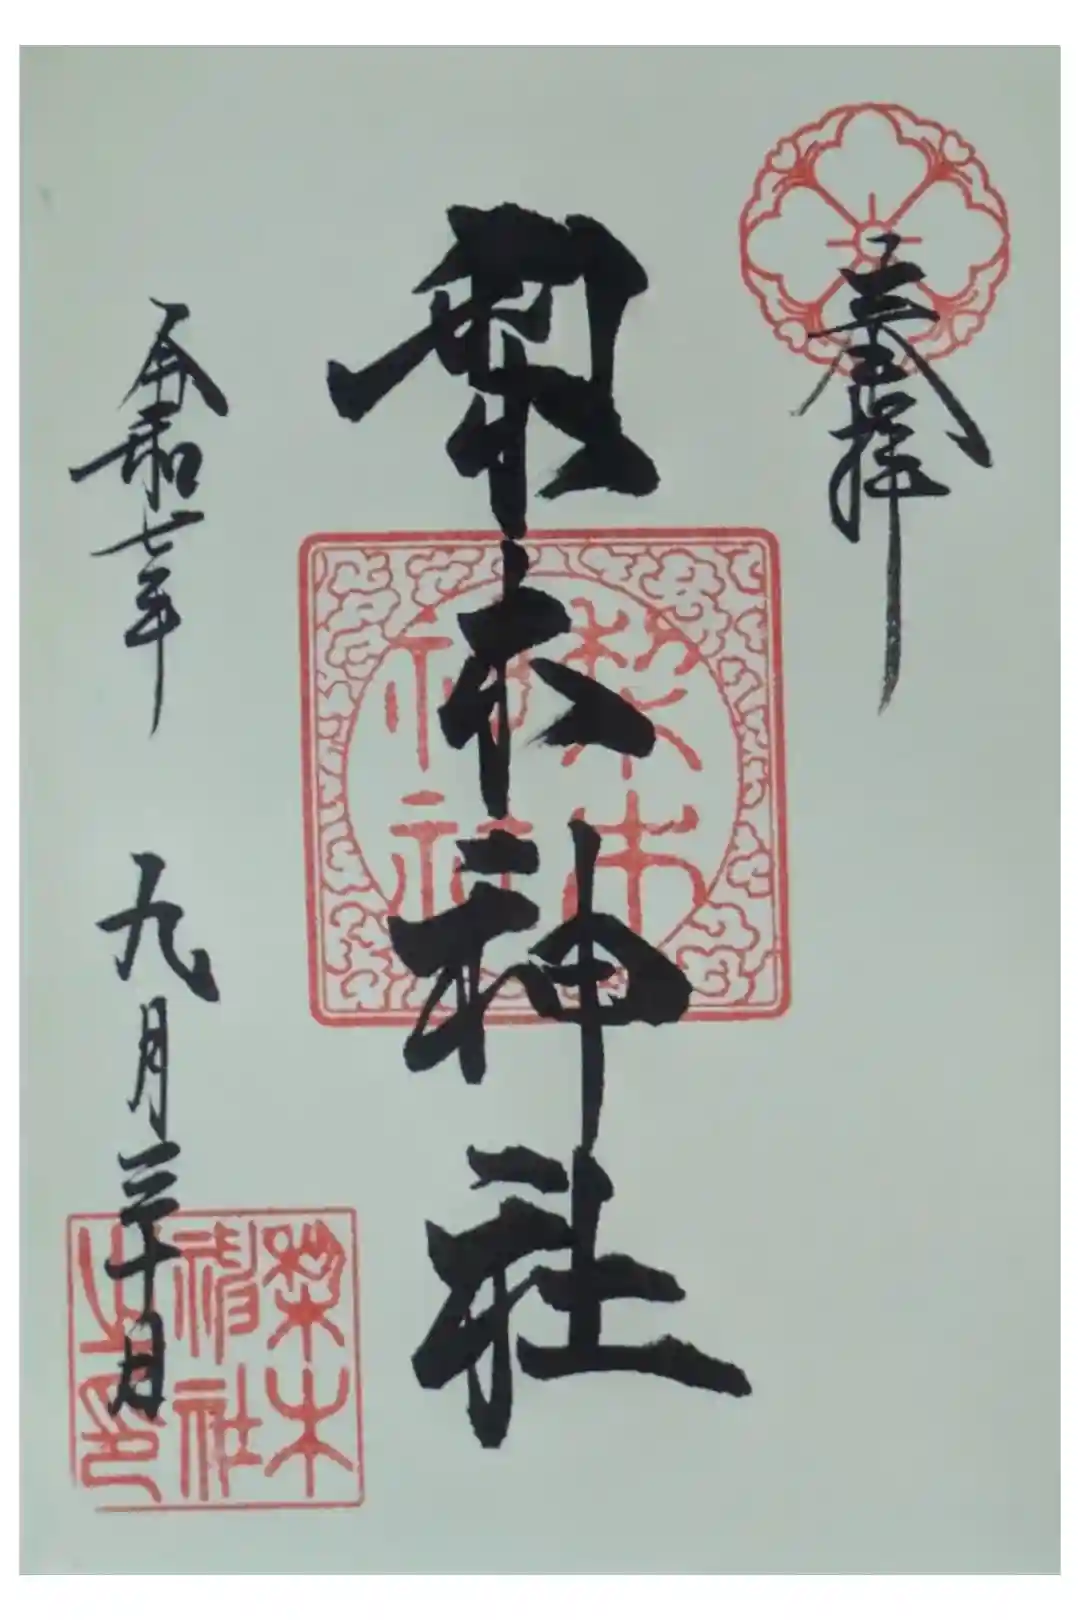 奉拝
梨木神社
令和七年 九月三十日
梨木
神社
梨木
神社
之印